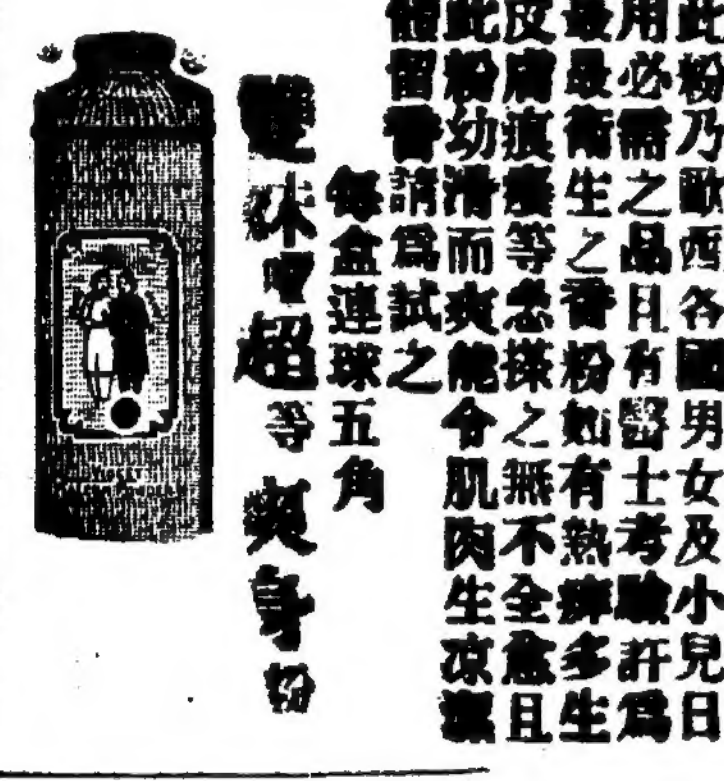 此粉乃歐西各國男女及小兒日
用必需之品且有醫士考驗許爲
最最衛生之香粉如有熱痱多生
皮膚痕癢等患搽之無不全愈且
此粉幼滑而爽能令肌肉生凉潔
體留香請爲試之
每盒連球五角
雙妹嚜超等爽身粉